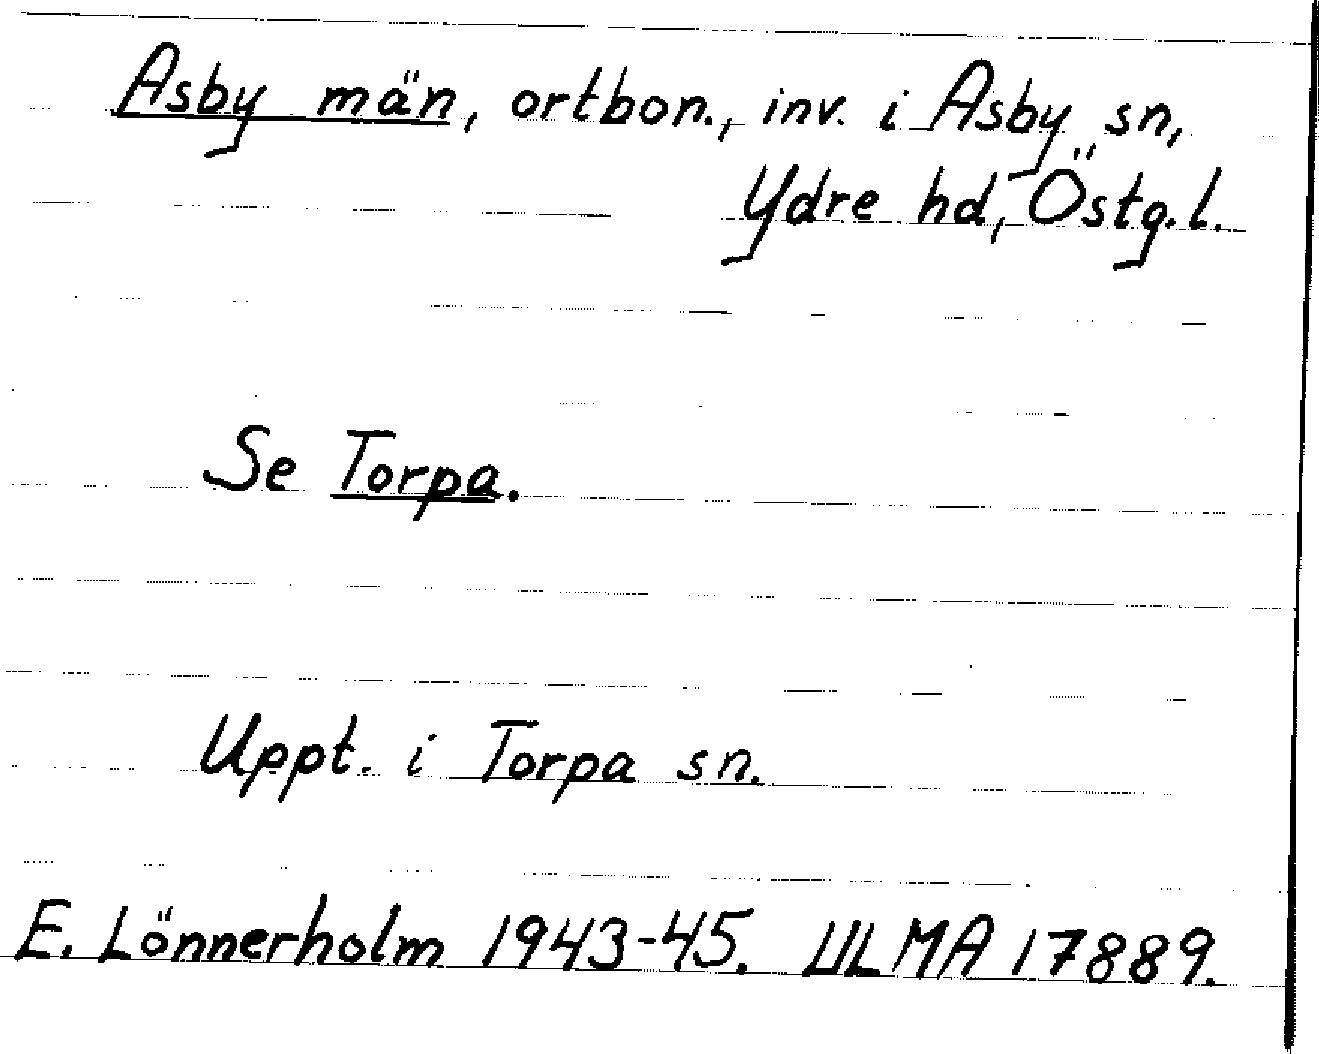 Asby män, ortbon., inv. i Asby sn,
Ydre hd, Östg.l.
Se Torpa.
Uppt. i Torpa sn.
E. Lönnerholm 1943-45. ULMA 17889.